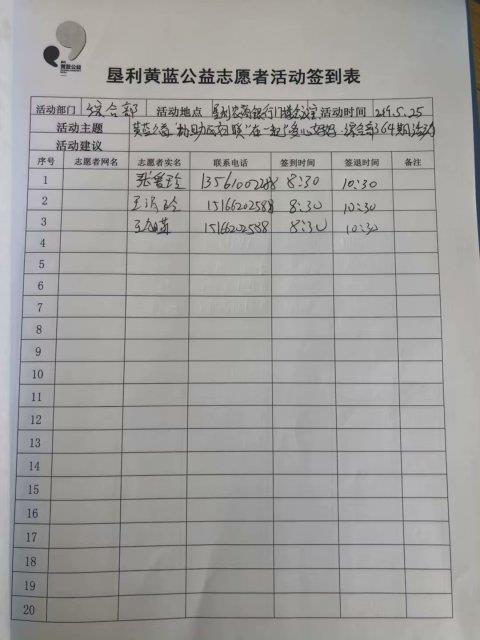 黄蓝公益
垦利黄蓝公益志愿者活动签到表
活动部门 综合部 活动地点 活动时间 2019.5.25
活动主题 黄蓝公益 协助 妇联"在一起"爱心妈妈 综合部364期活动
活动建议
序号 志愿者网名 志愿者实名 联系电话 签到时间 签退时间 备注
1 张爱玲 13561007288 8:30 10:30
2 15166202588 8:30 10:30
3 15166202588 8:30 10:30
4
5
6
7
8
9
10
11
12
13
14
15
16
17
18
19
20